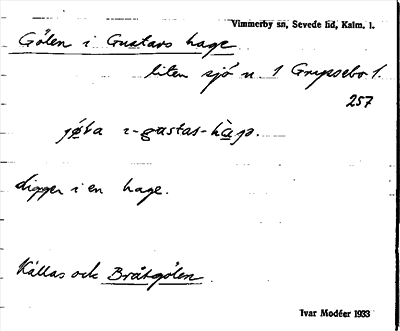 Vimmerby sn, Sevede hd, Kalm. l.
Gölen i Gustavs hage
liten sjö n. 1 Gryssebo 1.
257
ligger i en hage.
Kallas ock Bråtgölen.
Ivar Modéer 1933